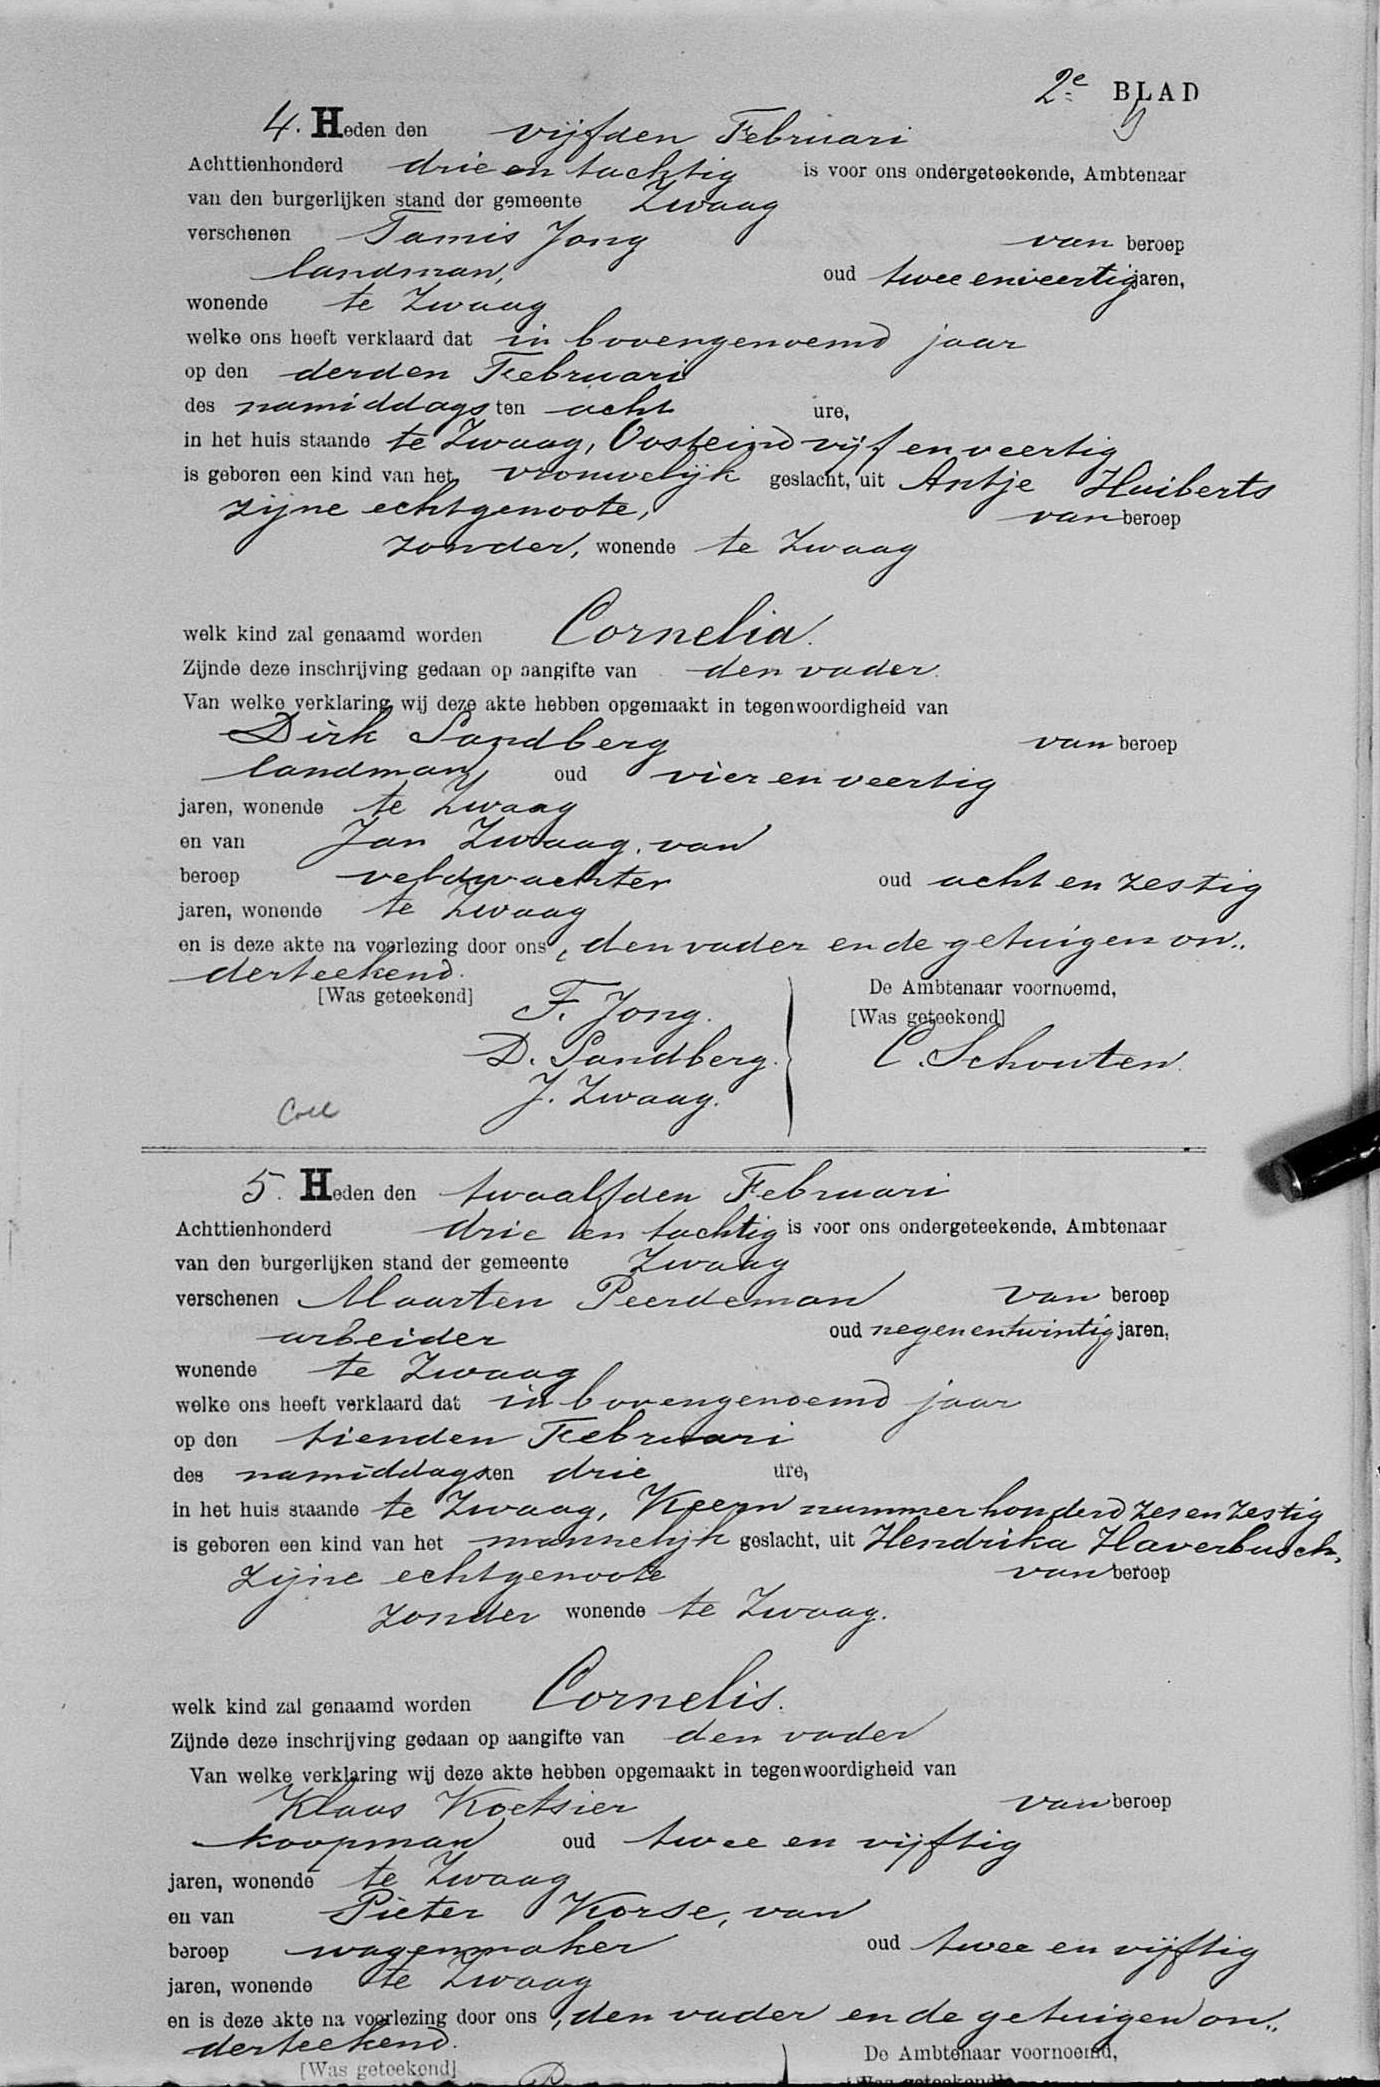 2e BLAD
4. Heden den vijfden Februari
Achttienhonderd drie en tachtig is voor ons ondergeteekende, Ambtenaar
van den burgerlijken stand der gemeente Zwaag
verschenen Tamis Jong van beroep
landman, oud twee en veertig jaren,
wonende te Zwaag
welke ons heeft verklaard dat in bovengenoemd jaar
op den derden Februari
des namiddags ten acht ure,
in het huis staande te Zwaag, Oosteind vijf en veertig
is geboren een kind van het vrouwelijk geslacht, uit Antje Huiberts
zijne echtgenoote, van beroep
zonder, wonende te Zwaag
welk kind zal genaamd worden Cornelia.
Zijnde deze inschrijving gedaan op aangifte van den vader.
Van welke verklaring wij deze akte hebben opgemaakt in tegenwoordigheid van
Dirk Sandberg van beroep
landman, oud vier en veertig
jaren, wonende te Zwaag
en van Jan Zwaag, van
beroep veldwachter oud acht en zestig
jaren, wonende te Zwaag
en is deze akte na voorlezing door ons, den vader en de getuigen on..
derteekend.
[Was geteekend] De Ambtenaar voornoemd,
T. Jong. [Was geteekend]
D. Sandberg. C. Schouten.
J. Zwaag.
Coll
5. Heden den twaalfden Februari
Achttienhonderd drie en tachtig is voor ons ondergeteekende, Ambtenaar
van den burgerlijken stand der gemeente Zwaag
verschenen Maarten Peerdeman van beroep
arbeider oud negen en twintig jaren,
wonende te Zwaag
welke ons heeft verklaard dat in bovengenoemd jaar
op den tienden Februari
des namiddags ten drie ure,
in het huis staande te Zwaag, Keern nummer honderd zes en zestig
is geboren een kind van het mannelijk geslacht, uit Hendrika Haverbusch,
zijne echtgenoote van beroep
zonder wonende te Zwaag.
welk kind zal genaamd worden Cornelis.
Zijnde deze inschrijving gedaan op aangifte van den vader
Van welke verklaring wij deze akte hebben opgemaakt in tegenwoordigheid van
Klaas Koetsier van beroep
koopman oud twee en vijftig
jaren, wonende te Zwaag
en van Pieter Korse, van
beroep wagenmaker oud twee en vijftig
jaren, wonende te Zwaag
en is deze akte na voorlezing door ons, den vader en de getuigen on..
derteekend.
[Was geteekend] De Ambtenaar voornoemd,
[Was geteekend]